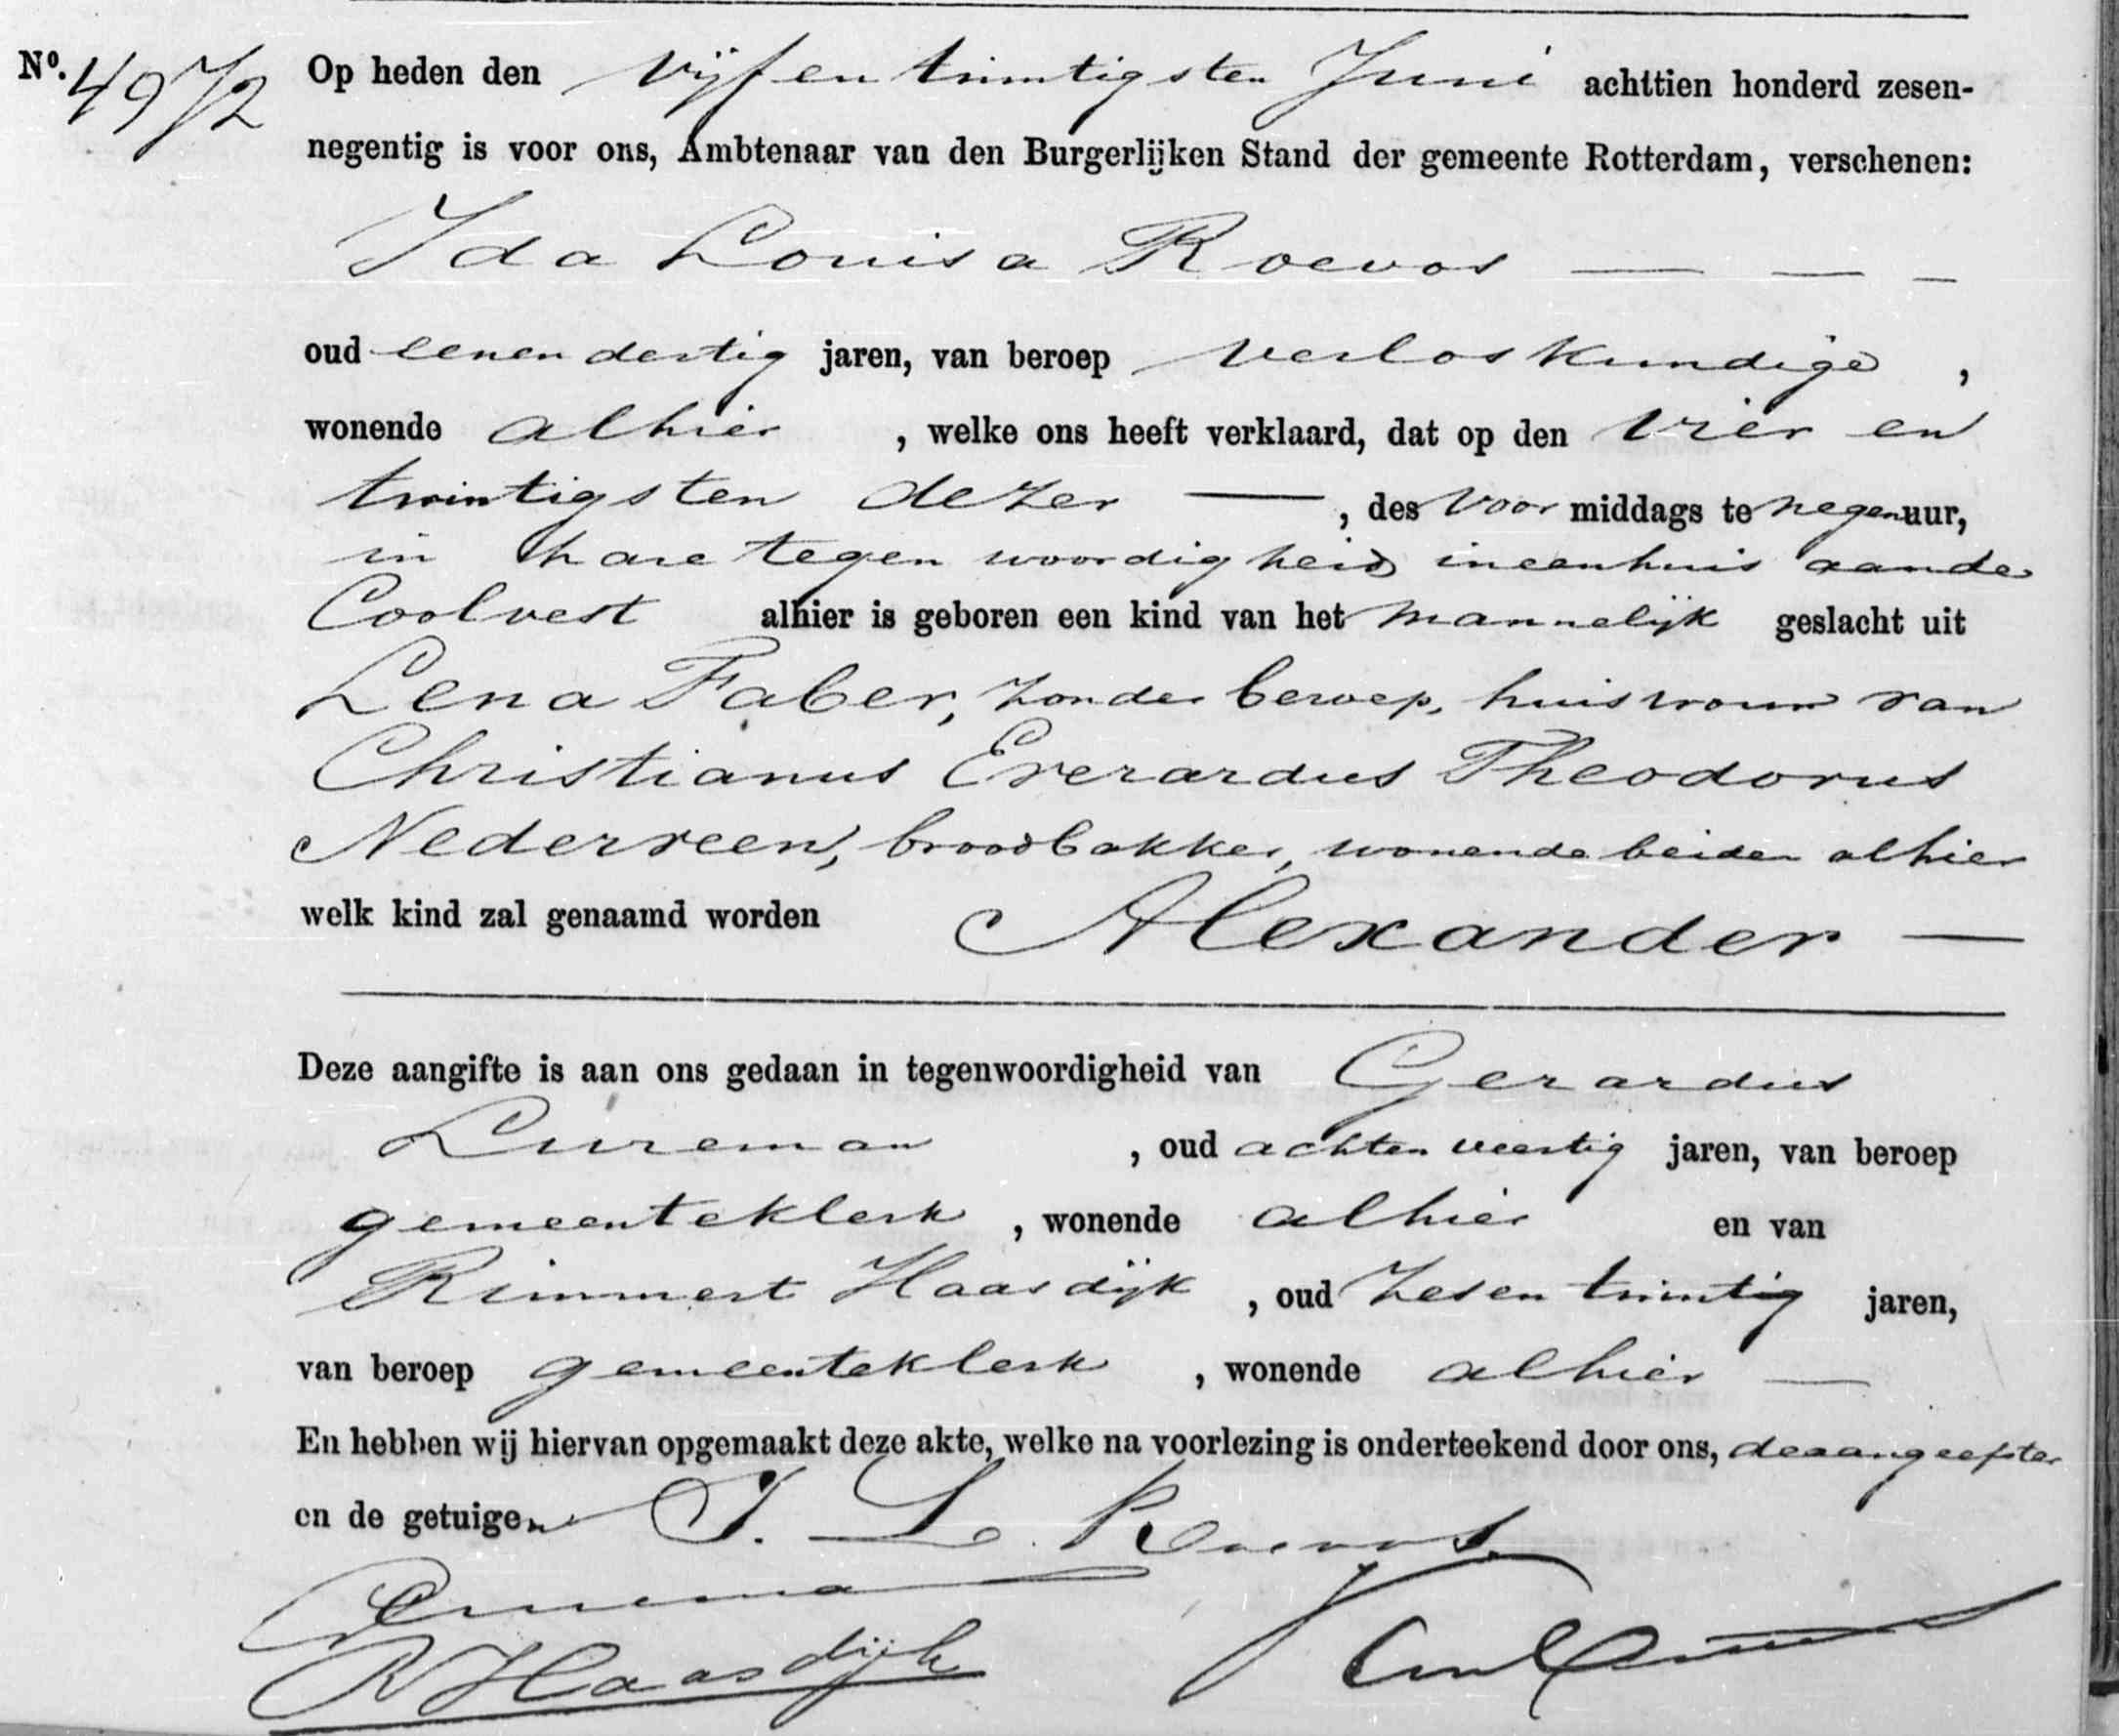 No. 4972 Op heden den vijfentwintigsten Juni achttien honderd zesen-
negentig is voor ons, Ambtenaar van den Burgerlijken Stand der gemeente Rotterdam, verschenen:
Ida Louisa Roevos — — –
oud eenendertig jaren, van beroep verloskundige,
wonende alhier, welke ons heeft verklaard, dat op den vier en
twintigsten dezer —, des voor middags te negen uur,
in hare tegenwoordigheid in een huis aan de
Coolvest alhier is geboren een kind van het mannelijk geslacht uit
Lena Faber, zonder beroep, huisvrouw van
Christianus Everardus Theodorus
Nederveen, broodbakker, wonende beiden alhier
welk kind zal genaamd worden Alexander —
Deze aangifte is aan ons gedaan in tegenwoordigheid van Gerardus
Lureman, oud achtenveertig jaren, van beroep
gemeenteklerk, wonende alhier en van
Rimmert Haasdijk, oud zesentwintig jaren,
van beroep gemeenteklerk, wonende alhier —
En hebben wij hiervan opgemaakt deze akte, welke na voorlezing is onderteekend door ons, de aangeefster
en de getuigen I. L. Roevos.
Lureman
R Haasdijk